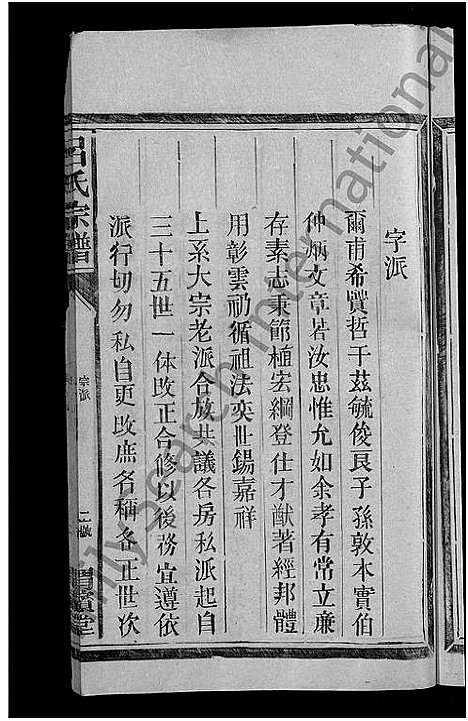 字派
爾甫希賢哲于茲毓俊良子孫敦本實伯
仲炳文章若汝忠惟允如余孝有常立廉
存素志秉節植宏綱登仕才猷著經邦體
用彰雲礽循祖法奕世錫嘉祥
上系大宗老派合族共議各房私派起自
三十五世一体改正合修以後務宜遵依
派行切勿私自更改庶名稱各正世次
呂氏宗譜
字派
二
渭濱堂
familysearch international